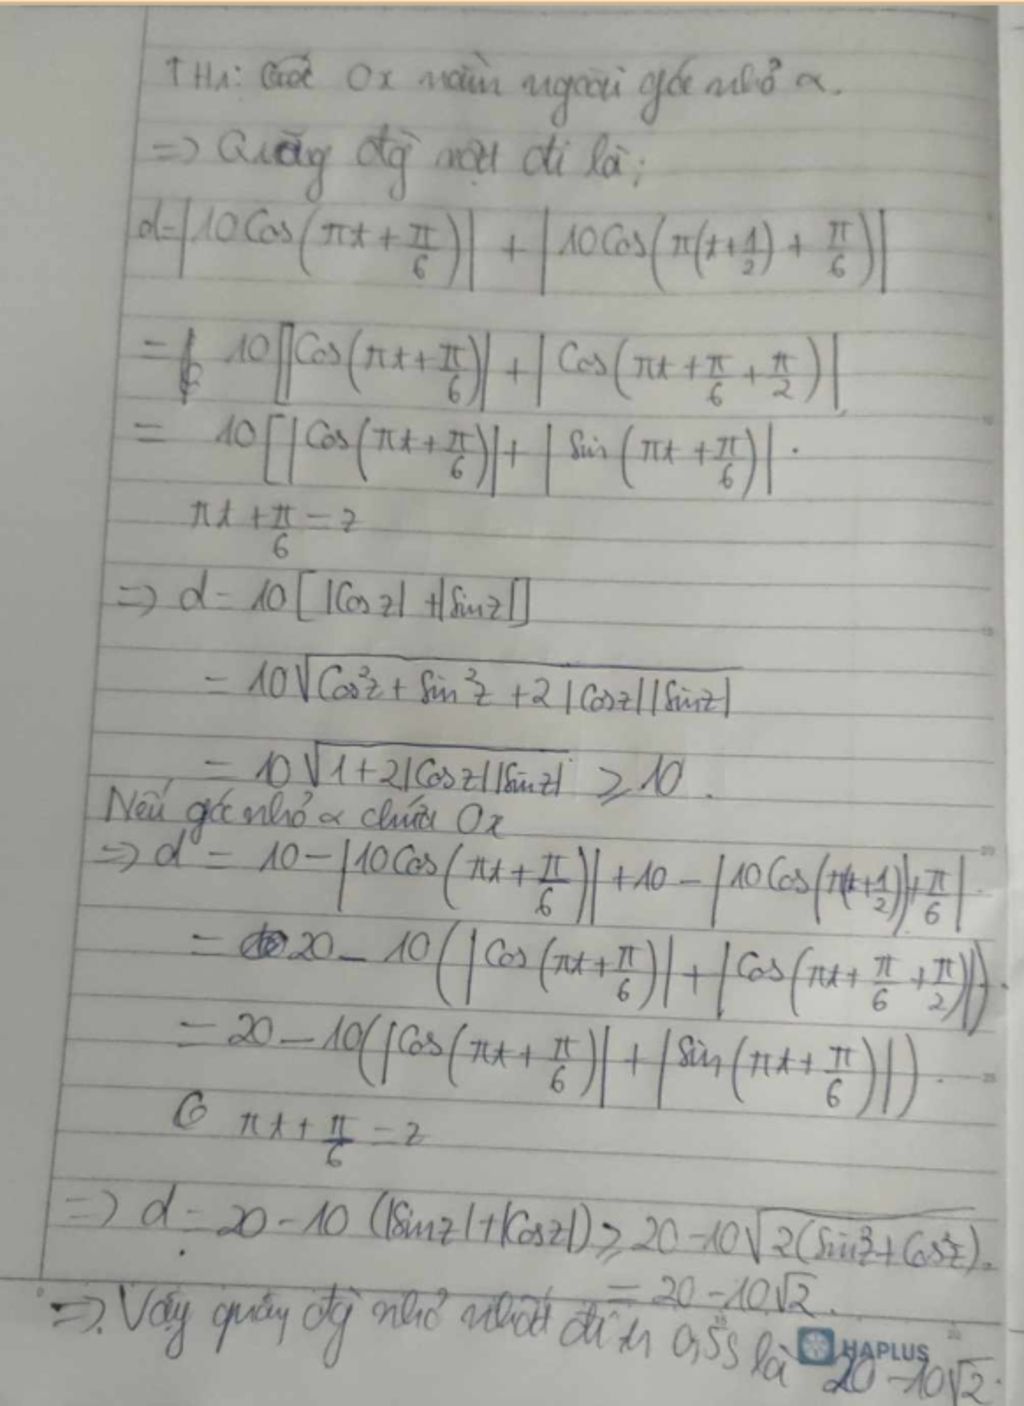 TH1: Ox nằm ngoài góc nhỏ α.
=> Quãng đg vật đi là:
d=|10Cos(πt+π/6)| + |10Cos(π(t+1/2)+π/6)|
= 10[|Cos(πt+π/6)|+|Cos(πt+π/6+π/2)|
= 10[|Cos(πt+π/6)|+|Sin(πt+π/6)|.
πt+π/6=z
=> d=10[|Cosz|+|Sinz|]
=10√(Cos²z+Sin²z+2|Cosz||Sinz|)
=10√(1+2|Cosz||Sinz|) ≥10.
Nếu góc nhỏ α chứa Ox
=> d=10-|10Cos(πt+π/6)|+10-|10Cos(π(t+1/2)+π/6|
=20-10(|Cos(πt+π/6)|+|Cos(πt+π/6+π/2)|).
=20-10(|Cos(πt+π/6)|+|Sin(πt+π/6)|).
πt+π/6=z
=> d=20-10(|Sinz|+|Cosz|)≥20-10√(2(Sin²z+Cos²z)).
=20-10√2.
=>. Vậy quãng đg nhỏ nhất đi 0,5s là 20-10√2.
HAPLUS